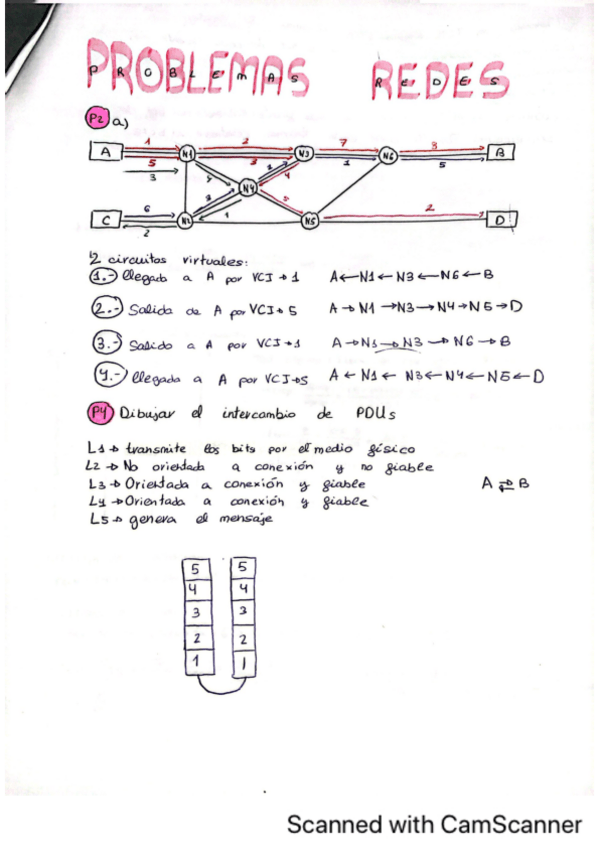 PROBLEMAS REDES
P2 a)
1 2 7 8
A N1 N3 N6 B
5 3 1 5
3 5 2 4
N4
6 3 5 2
C N2 N5 D
2 1
2 circuitos virtuales:
1.- llegada a A por VCI→1 A←N1←N3←N6←B
2.- Salida de A por VCI→5 A→N1→N3→N4→N5→D
3.- Salido a A por VCI→1 A→N1→N3→N6→B
4.- llegada a A por VCI→5 A←N1←N3←N4←N5←D
P4 Dibujar el intercambio de PDUs
L1→ transmite los bits por el medio físico
L2→ No orientada a conexión y no fiable
L3→ Orientada a conexión y fiable A ⇄ B
L4→ Orientada a conexión y fiable
L5→ genera el mensaje
5 5
4 4
3 3
2 2
1 1
Scanned with CamScanner